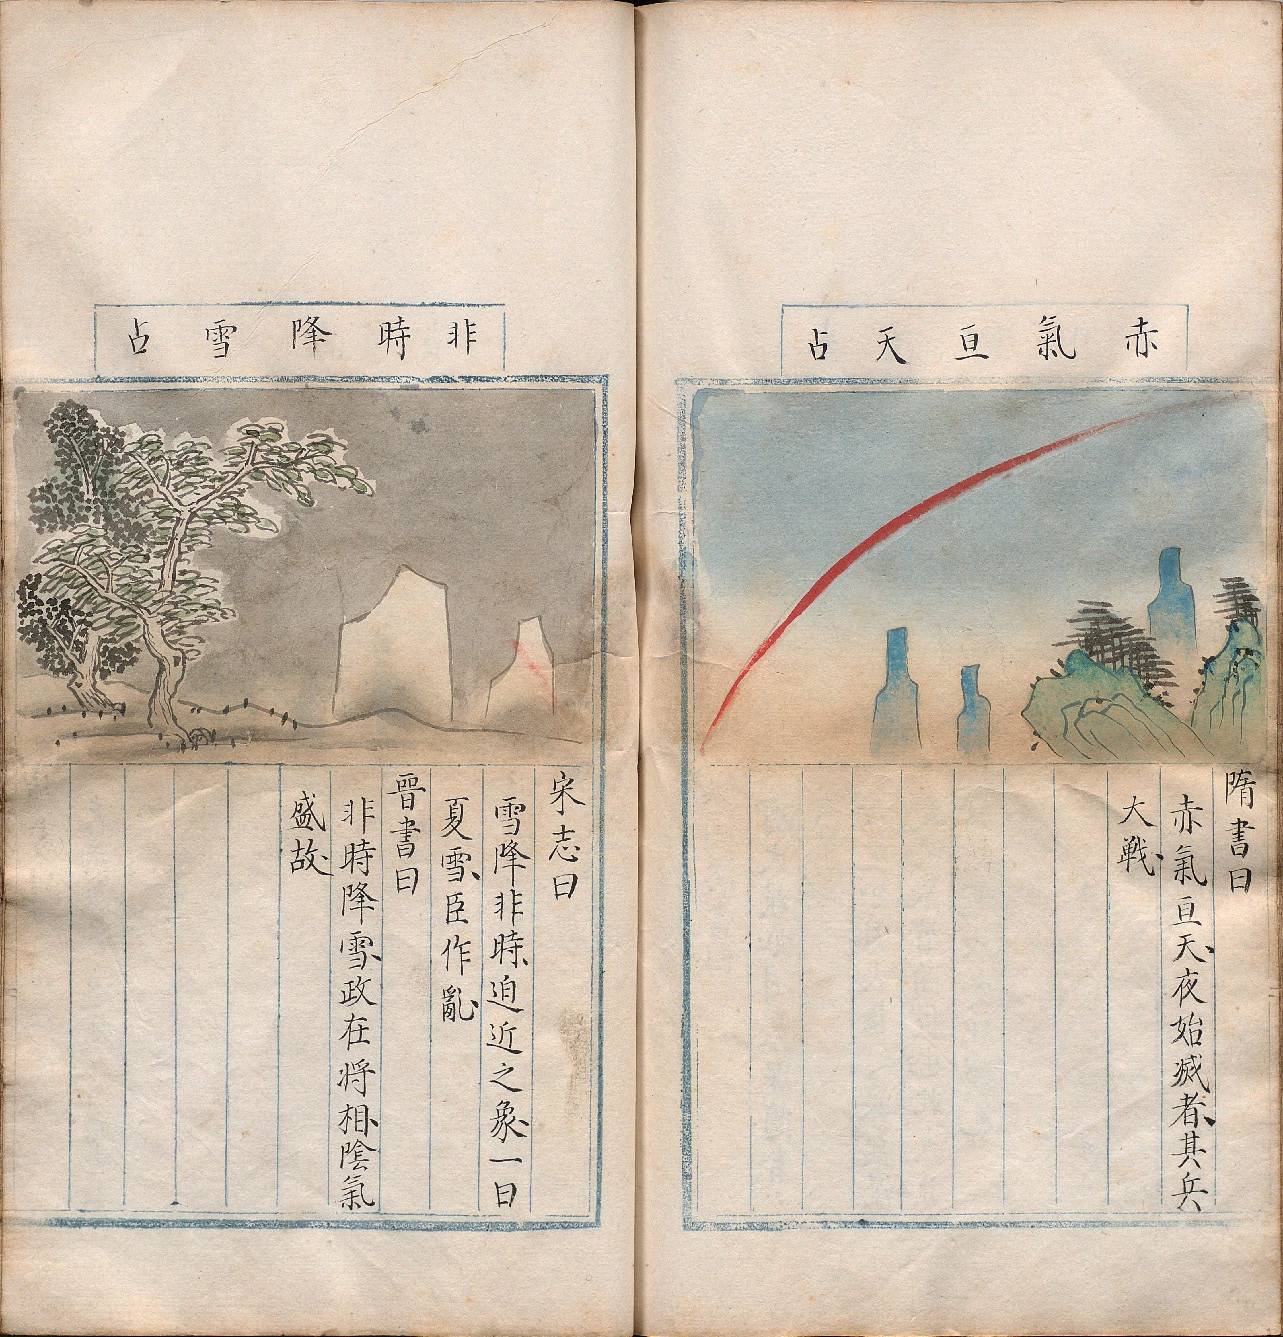 赤氣亘天占
隋書曰
赤氣亘天、夜始滅者、其兵
大戰、
非時降雪占
宋志曰
雪降非時、迫近之象、一曰
夏雪、臣作亂、
晉書曰
非時降雪、政在将相、陰氣
盛故、